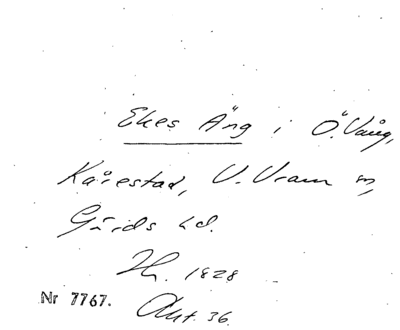 Ekes Äng i Ö. Vång,
Kårestad, V. Vram sn,
Gärds hd.
Hr. 1828
Nr 7767. Akt. 36.